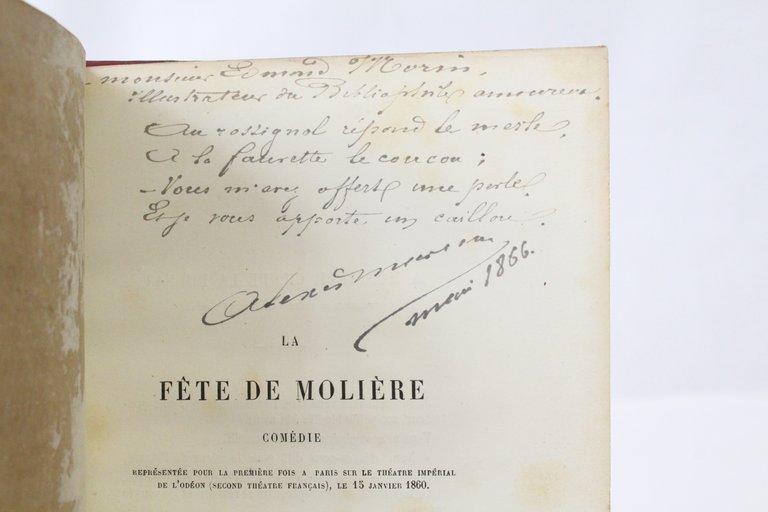 à monsieur Edmond Morin,
illustrateur du Bibliophile amoureux.
Au rossignol répond le merle,
A la fauvette le coucou ;
– Vous m'avez offert une perle
Et je vous apporte un caillou.
mai 1866.
LA
FÊTE DE MOLIÈRE
COMÉDIE
REPRÉSENTÉE POUR LA PREMIÈRE FOIS A PARIS SUR LE THÉATRE IMPÉRIAL
DE L'ODÉON (SECOND THÉATRE FRANÇAIS), LE 15 JANVIER 1860.